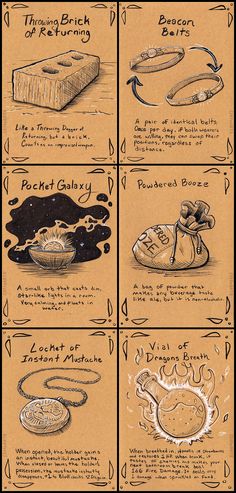 Throwing Brick
of Returning
Like a Throwing Dagger of
Returning, but a brick.
Counts as an improvised weapon.
Beacon
Belts
A pair of identical belts
Once per day, if both wearers
are willing, they can swap their
positions, regardless of
distance.
Pocket Galaxy
A small orb that casts dim,
starlike lights in a room.
Very calming, and floats in
water.
Powdered Booze
A bag of powder that
makes any beverage taste
like ale, but it is non-alcoholic.
Locket of
Instant Mustache
When opened, the holder gains
an instant, beautiful mustache.
When closed or leaves the holder's
possession, the mustache instantly
disappears.
Vial of
Dragons Breath
When breathed in,
When drunk, it
tastes of
your
next
Fire Damage. It deals only
1 damage when sprinkled on food.